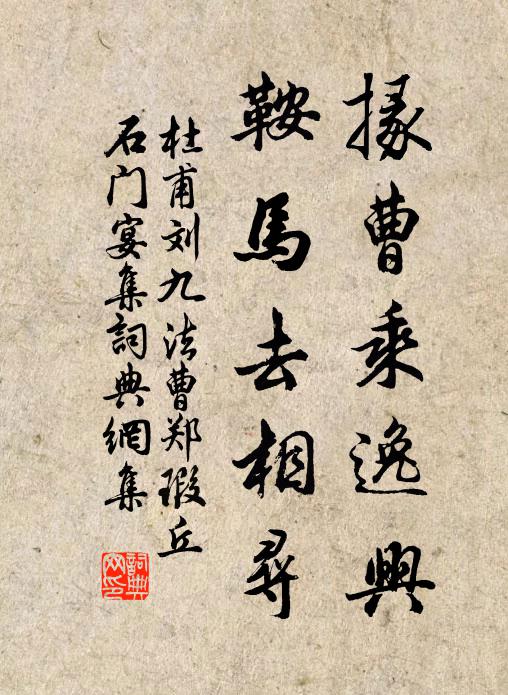 掾曹乘逸興
鞍馬去相尋
杜甫刘九法曹郑瑕丘
石门宴集詞典網集
詞典網印